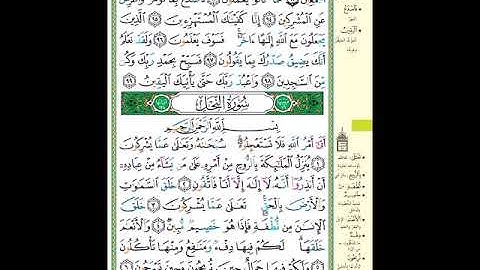 عَنِ الْمُشْرِكِينَ ٩٤ إِنَّا كَفَيْنَاكَ الْمُسْتَهْزِءِينَ ٩٥ الَّذِينَ
يَجْعَلُونَ مَعَ اللَّهِ إِلَٰهًا ءَاخَرَ فَسَوْفَ يَعْلَمُونَ ٩٦ وَلَقَدْ نَعْلَمُ
أَنَّكَ يَضِيقُ صَدْرُكَ بِمَا يَقُولُونَ ٩٧ فَسَبِّحْ بِحَمْدِ رَبِّكَ وَكُن
مِّنَ السَّاجِدِينَ ٩٨ وَاعْبُدْ رَبَّكَ حَتَّىٰ يَأْتِيَكَ الْيَقِينُ ٩٩
سُورَةُ النَّحْلِ
بِسْمِ اللَّهِ الرَّحْمَٰنِ الرَّحِيمِ
أَتَىٰ أَمْرُ اللَّهِ فَلَا تَسْتَعْجِلُوهُ سُبْحَانَهُ وَتَعَالَىٰ عَمَّا يُشْرِكُونَ
١ يُنَزِّلُ الْمَلَائِكَةَ بِالرُّوحِ مِنْ أَمْرِهِ عَلَىٰ مَن يَشَاءُ مِنْ عِبَادِهِ
أَنْ أَنذِرُوا أَنَّهُ لَا إِلَٰهَ إِلَّا أَنَا فَاتَّقُونِ ٢ خَلَقَ السَّمَاوَاتِ
وَالْأَرْضَ بِالْحَقِّ تَعَالَىٰ عَمَّا يُشْرِكُونَ ٣ خَلَقَ
الْإِنسَانَ مِن نُّطْفَةٍ فَإِذَا هُوَ خَصِيمٌ مُّبِينٌ ٤ وَالْأَنْعَامَ
خَلَقَهَا لَكُمْ فِيهَا دِفْءٌ وَمَنَافِعُ وَمِنْهَا تَأْكُلُونَ
٥ وَلَكُمْ فِيهَا جَمَالٌ حِينَ تُرِيحُونَ وَحِينَ تَسْرَحُونَ ٦